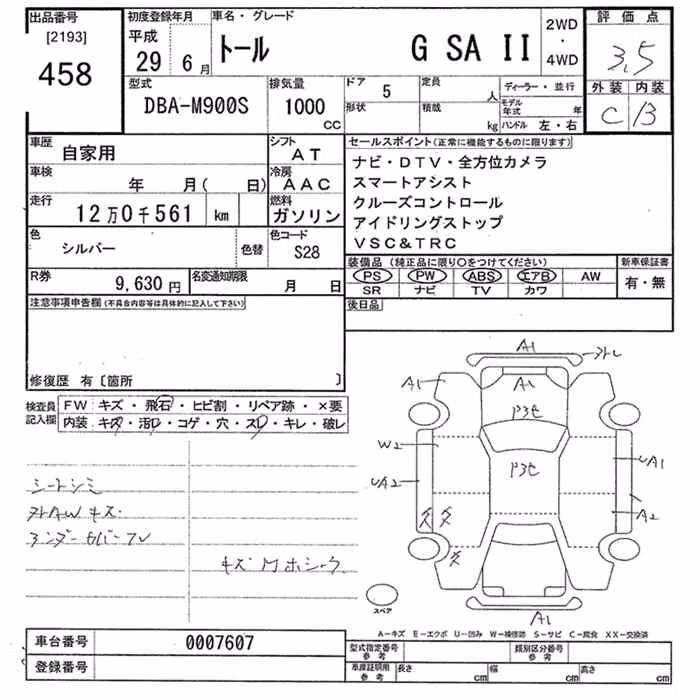 出品番号 初度登録年月 車名・グレード 2WD・4WD 評価点
[2193] 平成
458 29 6月 トール G SA II 3.5
型式 排気量 ドア 5 定員 人 ディーラー・並行 外装 内装
DBA-M900S 1000 cc 形状 積載 kg モデル年式 年 ハンドル 左・右 C B
車歴 自家用 シフト AT
車検 年 月( 日) 冷房 AAC
走行 12万0千561 km 燃料 ガソリン
色 シルバー 色替 色コード S28
R券 9,630円 名変通知期限 月 日
セールスポイント(正常に機能するものに限ります)
ナビ・DTV・全方位カメラ
スマートアシスト
クルーズコントロール
アイドリングストップ
VSC&TRC
装備品(純正品に限り○をつけてください) 新車保証書
PS PW ABS エアB AW 有・無
SR ナビ TV カワ
後日品
注意事項申告欄(不具合内容等は具体的に記入して下さい)
修復歴 有〔箇所 〕
検査員記入欄 FW キズ・飛石・ヒビ割・リペア跡・×要
内装 キズ・汚レ・コゲ・穴・スレ・キレ・破レ
シートシミ
外AWキズ
アンダーカバーワレ
キズ
A1
A1
A1
W2
UA2
UA1
A2
A1
スペア
A-キズ E-エクボ U-凹み W-補修跡 S-サビ C-腐食 XX-交換済
車台番号 0007607
登録番号
型式指定番号 参考 類別区分番号 参考
車庫証明用 参考 長さ cm 幅 cm 高さ cm